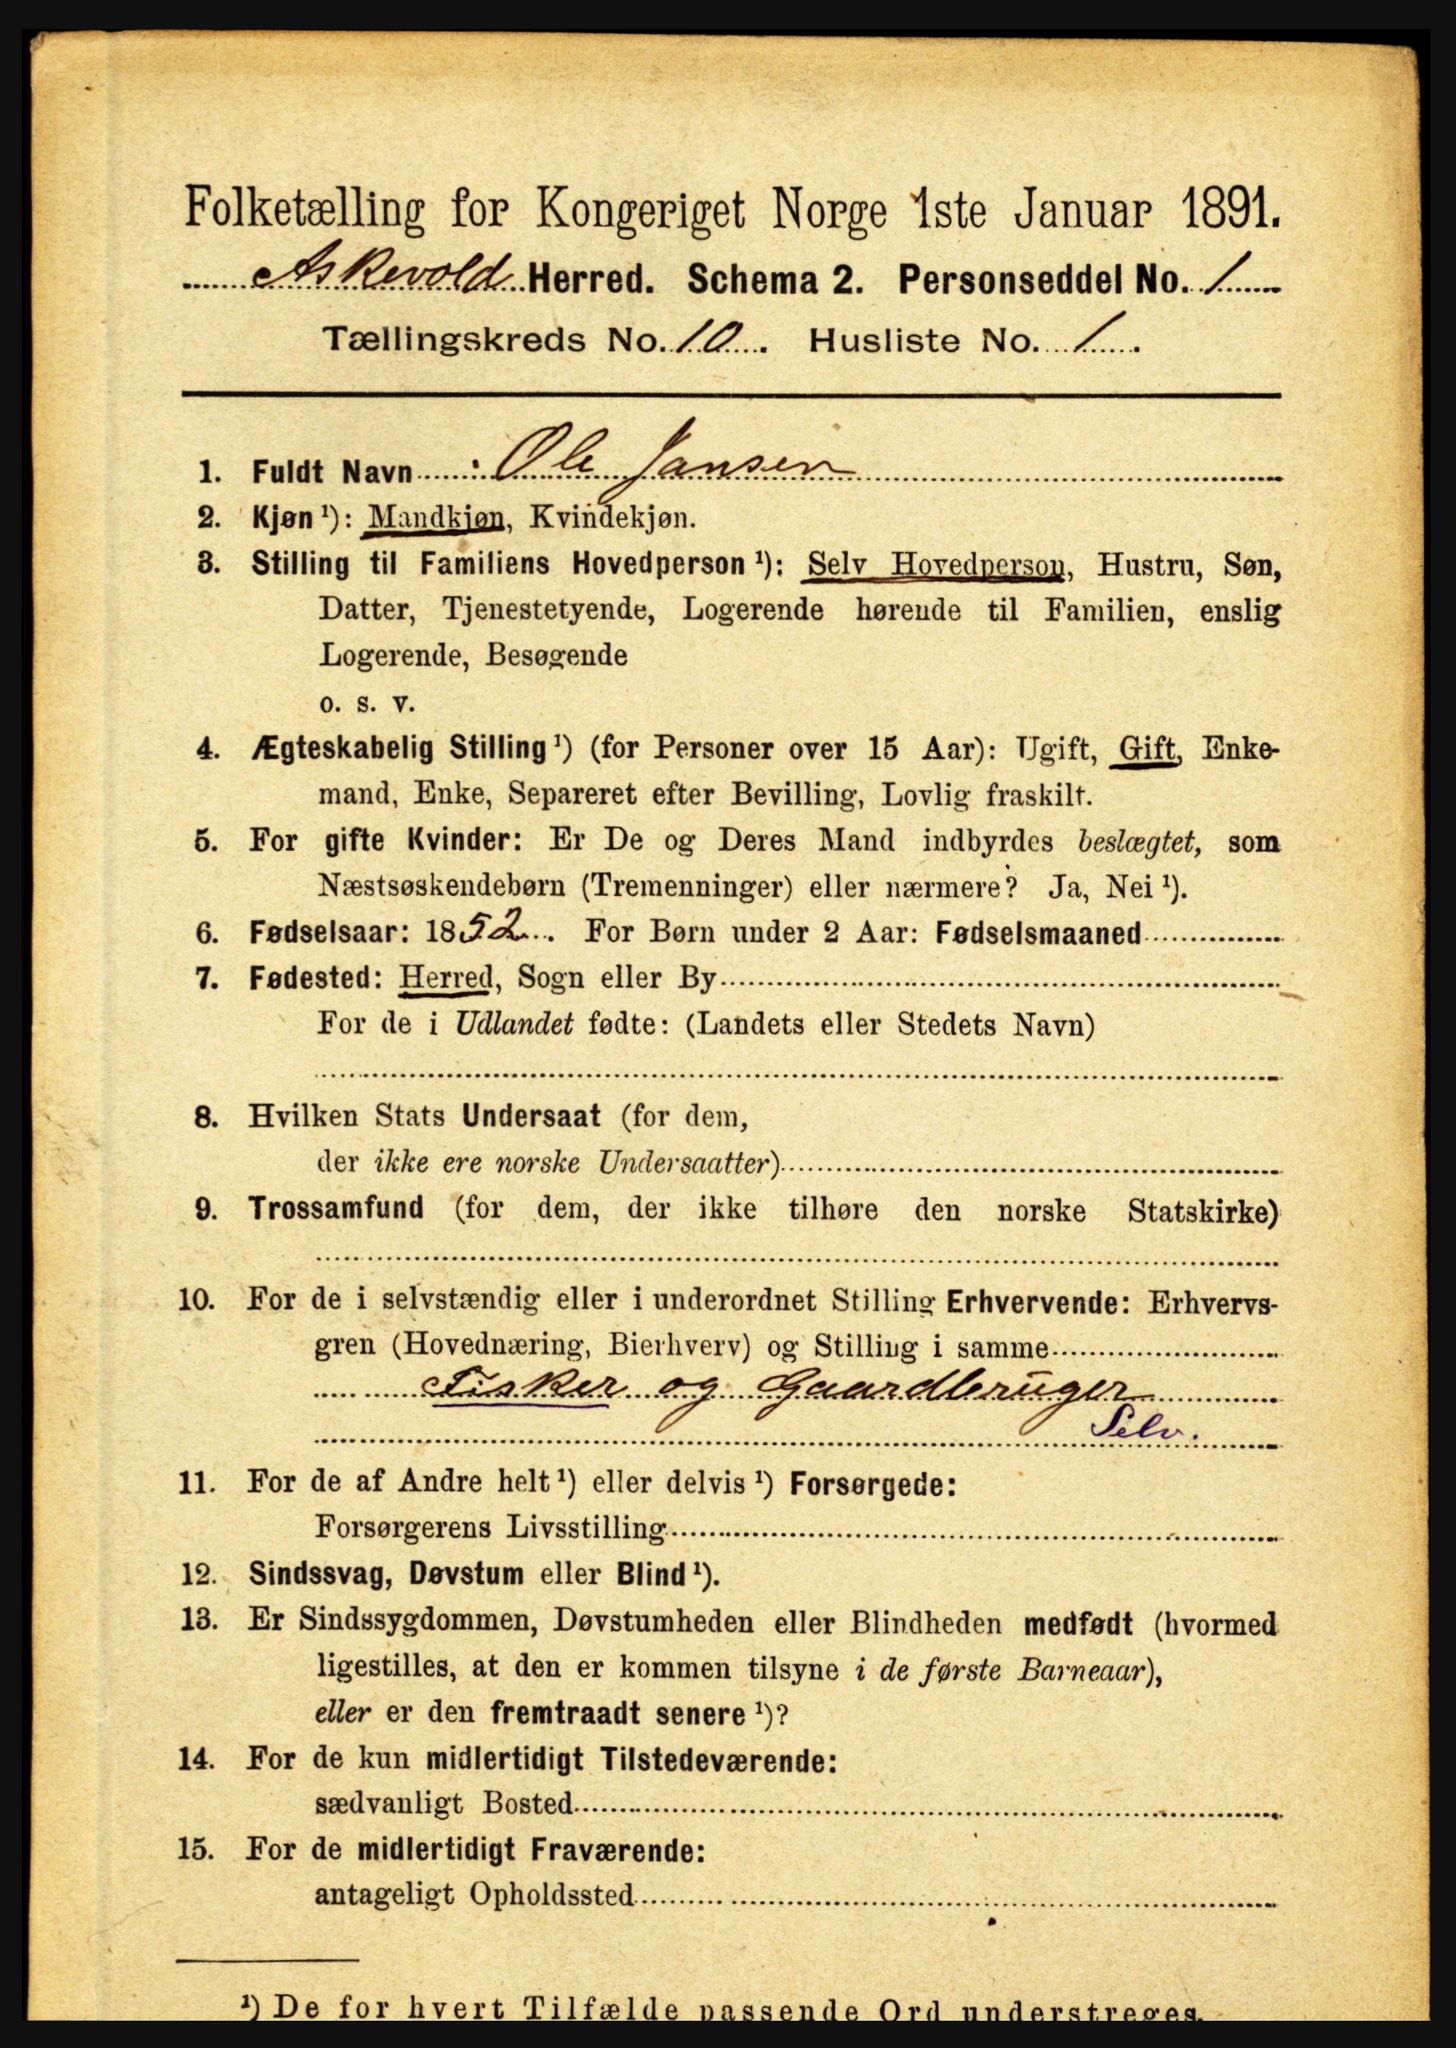 Folketælling for Kongeriget Norge 1ste Januar 1891.
Askevold Herred. Schema 2. Personseddel No. 1
Tællingskreds No. 10. Husliste No. 1.
1. Fuldt Navn : Ole Jansen
2. Kjøn ¹): Mandkjøn, Kvindekjøn.
3. Stilling til Familiens Hovedperson ¹): Selv Hovedperson, Hustru, Søn,
Datter, Tjenestetyende, Logerende hørende til Familien, enslig
Logerende, Besøgende
o. s. v.
4. Ægteskabelig Stilling ¹) (for Personer over 15 Aar): Ugift, Gift, Enke-
mand, Enke, Separeret efter Bevilling, Lovlig fraskilt.
5. For gifte Kvinder: Er De og Deres Mand indbyrdes beslægtet, som
Næstsøskendebørn (Tremenninger) eller nærmere? Ja, Nei ¹).
6. Fødselsaar: 1852. For Børn under 2 Aar: Fødselsmaaned
7. Fødested: Herred, Sogn eller By
For de i Udlandet fødte: (Landets eller Stedets Navn)
8. Hvilken Stats Undersaat (for dem,
der ikke ere norske Undersaatter)
9. Trossamfund (for dem, der ikke tilhøre den norske Statskirke)
10. For de i selvstændig eller i underordnet Stilling Erhvervende: Erhvervs-
gren (Hovednæring, Bierhverv) og Stilling i samme
Fisker og Gaardbruger
Selv.
11. For de af Andre helt ¹) eller delvis ¹) Forsørgede:
Forsørgerens Livsstilling
12. Sindssvag, Døvstum eller Blind ¹).
13. Er Sindssygdommen, Døvstumheden eller Blindheden medfødt (hvormed
ligestilles, at den er kommen tilsyne i de første Barneaar),
eller er den fremtraadt senere ¹)?
14. For de kun midlertidigt Tilstedeværende:
sædvanligt Bosted
15. For de midlertidigt Fraværende:
antageligt Opholdssted
¹) De for hvert Tilfælde passende Ord understreges.